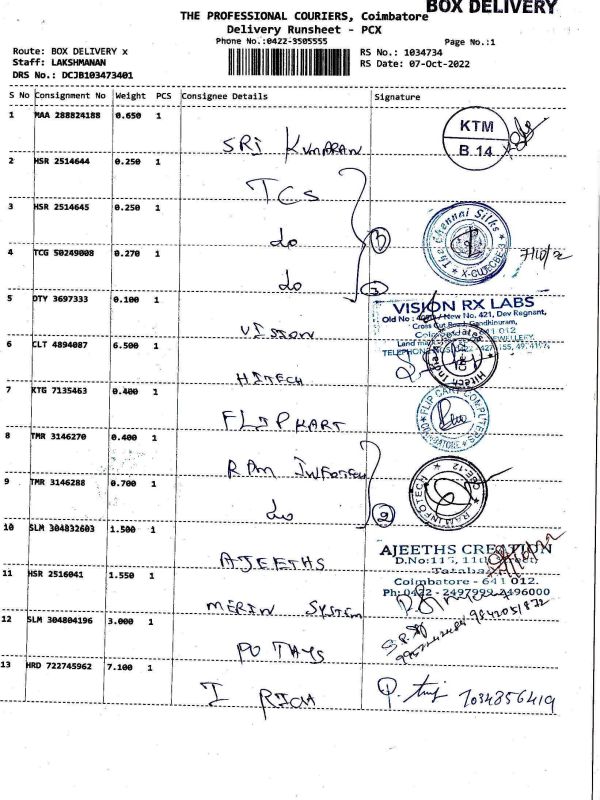 BOX DELIVERY
THE PROFESSIONAL COURIERS, Coimbatore
Delivery Runsheet - PCX
Phone No.:0422-3505555
Page No.:1
Route: BOX DELIVERY x
RS No.: 1034734
Staff: LAKSHMANAN
RS Date: 07-Oct-2022
DRS No.: DCJB103473401
S No Consignment No Weight PCS Consignee Details Signature
1 MAA 288824188 0.650 1
SRI KUMARAN
KTM
B.14
2 HSR 2514644 0.250 1
TCS
3 HSR 2514645 0.250 1
do
The Chennai Silks
X-CUT-CBE-3
4 TCG 50249008 0.270 1
do
3
5 DTY 3697333 0.100 1
VISION
VISION RX LABS
New No. 421, Dev Regnant,
Cross Cut Road, Gandhipuram,
6 CLT 4894087 6.500 1
HITECH
7 KTG 7135463 0.400 1
FLIPKART
FLIP CART COMPUTERS
8 TMR 3146270 0.400 1
RAM INFOTECH
9 TMR 3146288 0.700 1
do
2
RAM INFOTECH
CBE-12
10 SLM 304832603 1.500 1
AJEETHS
AJEETHS CREATION
D.No:115, 11th Street,
Tatabad
Coimbatore - 641 012.
Ph: 0422 - 2497999, 2496000
11 HSR 2516041 1.550 1
MERIN SYSTEM
12 SLM 304804196 3.000 1
POTHYS
13 HRD 722745962 7.100 1
I RICH
7034856419